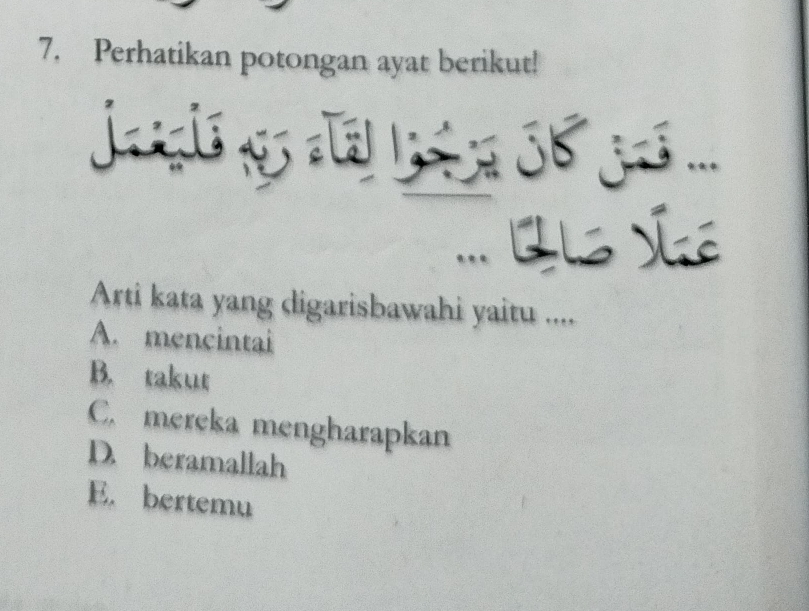 7. Perhatikan potongan ayat berikut!
... فَمَنْ كَانَ يَرْجُوْا لِقَآءَ رَبِّهٖ فَلْيَعْمَلْ
عَمَلًا صَالِحًا ...
Arti kata yang digarisbawahi yaitu ....
A. mencintai
B. takut
C. mereka mengharapkan
D. beramallah
E. bertemu